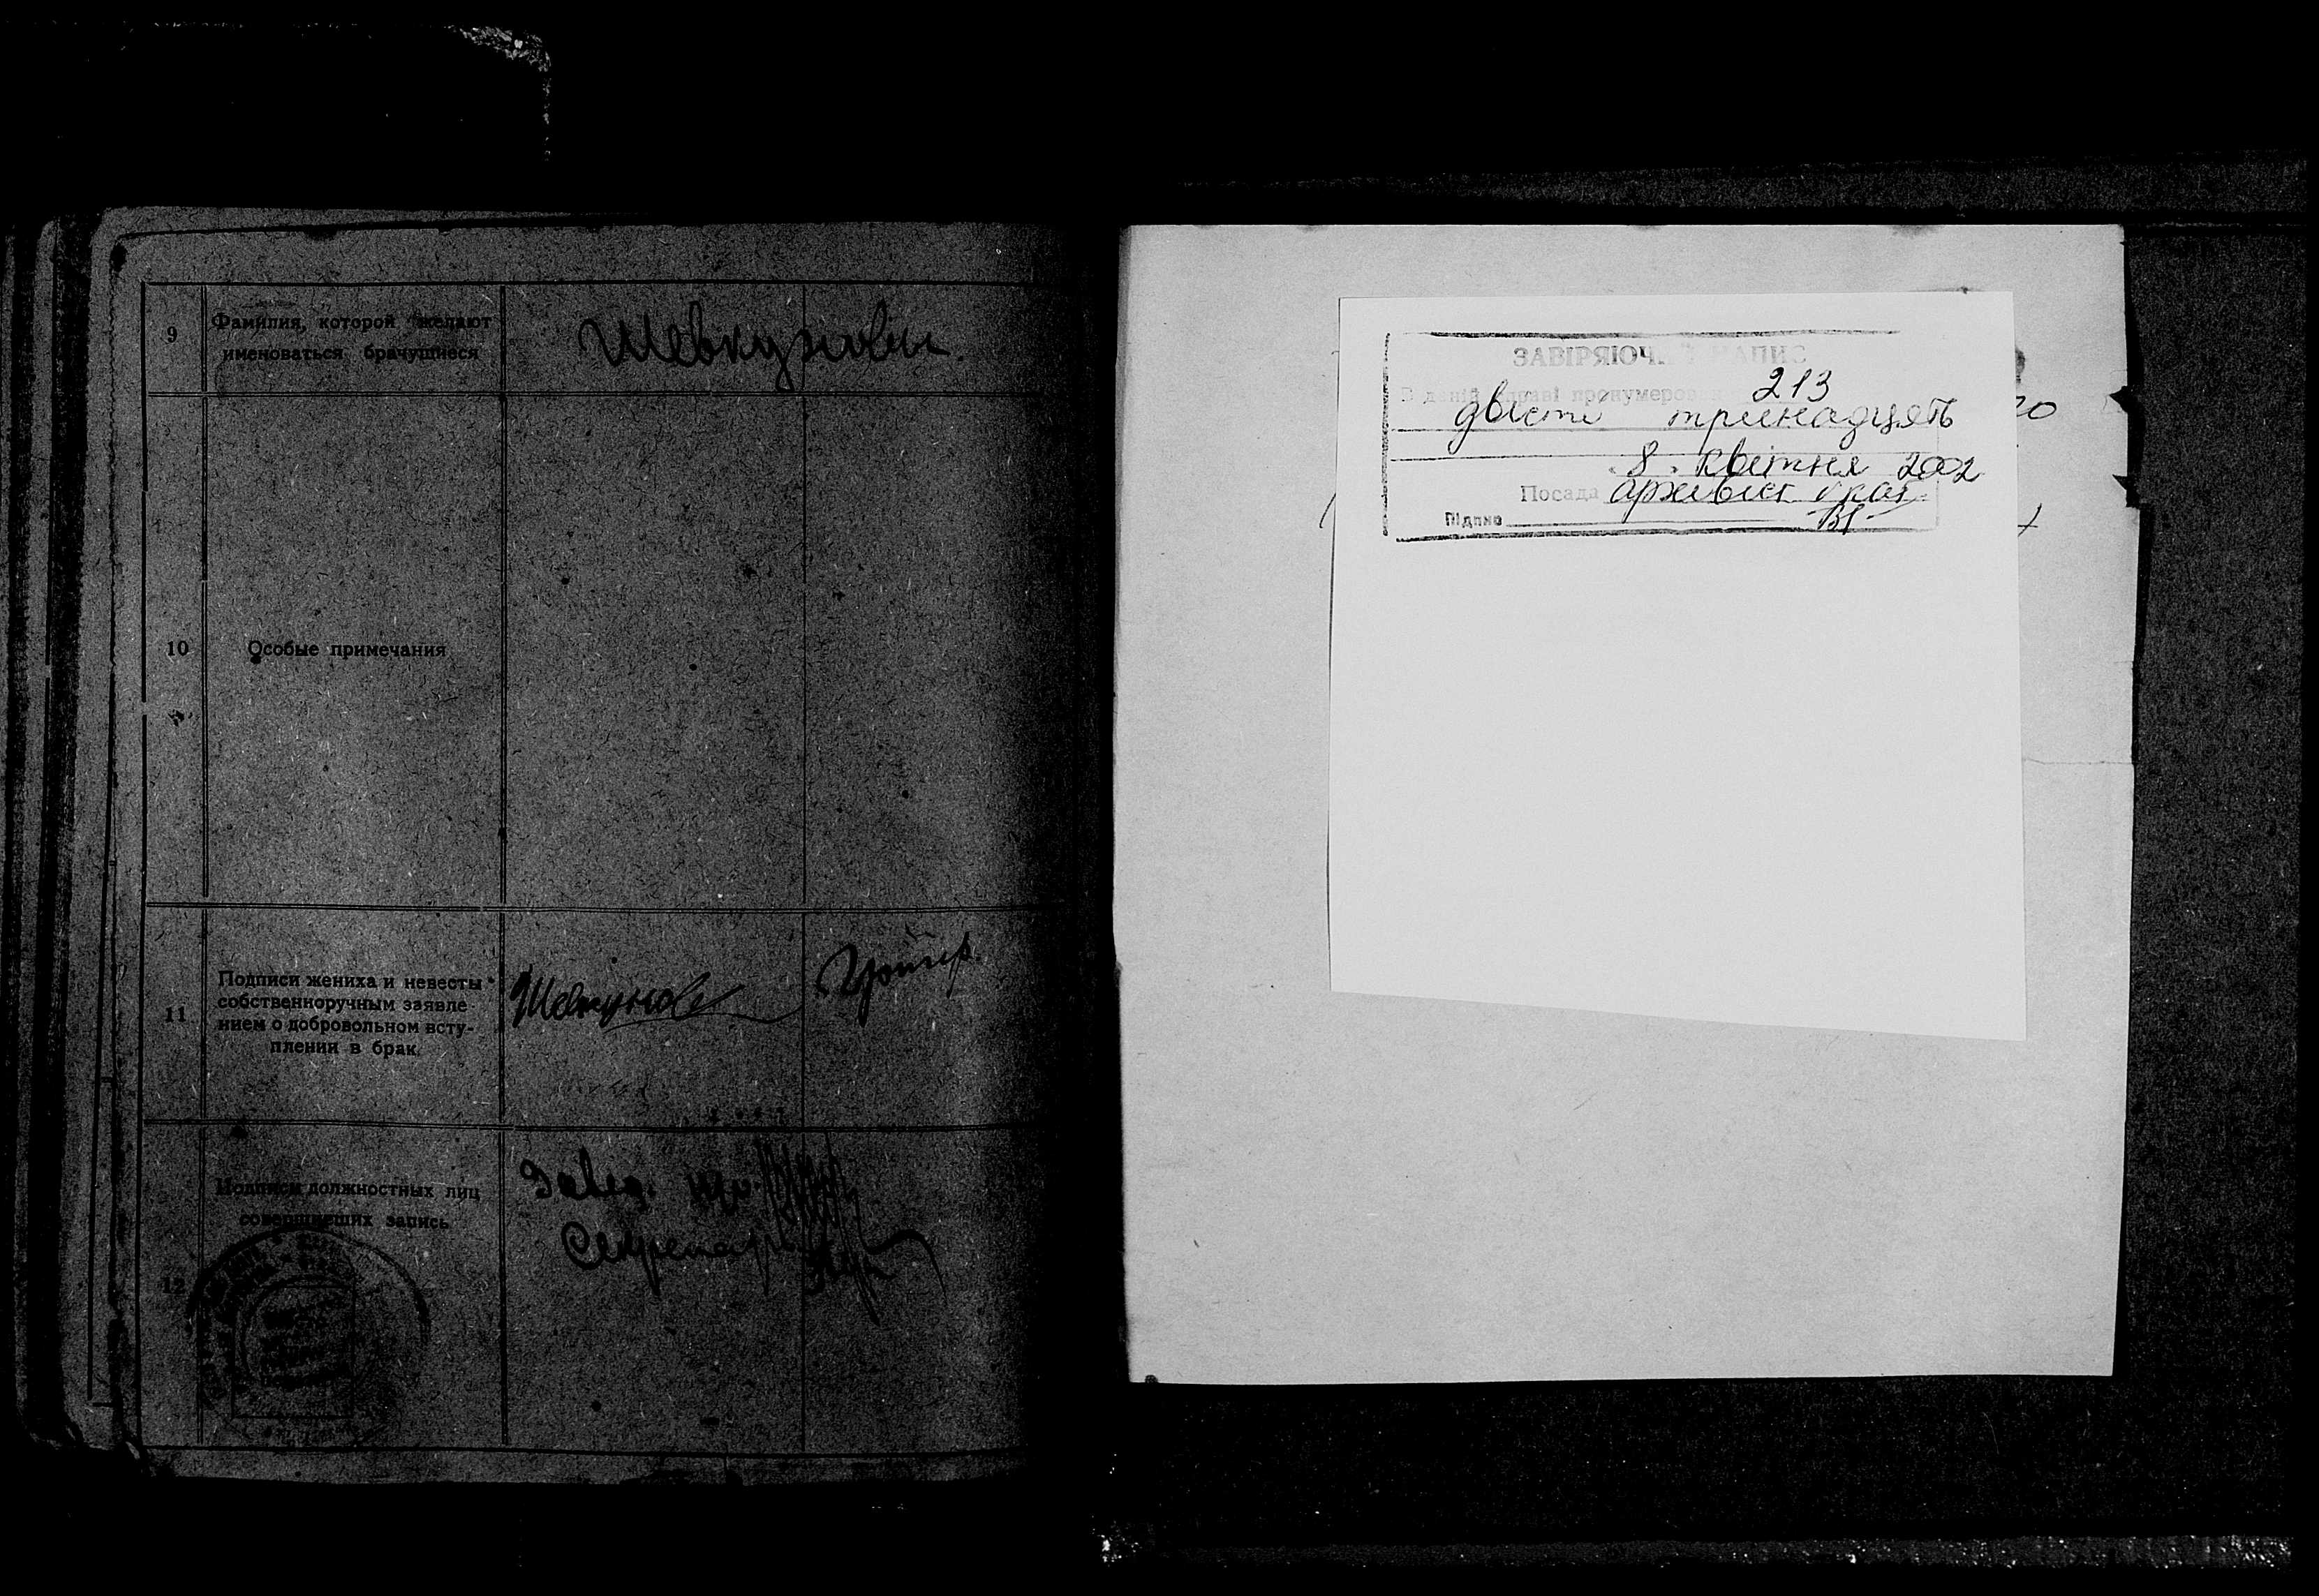 9
Фамилия, которой желают
именоваться брачущиеся
10
Особые примечания
11
Подписи жениха и невесты
собственноручным заявле-
нием о добровольном всту-
плении в брак.
Подписи должностных лиц
совершивших запись
12
Завед.
Секретарь
ЗАВІРЯЮЧ НАПИС
В даній справі пронумеров 213
двісті тринадцять
8. квітня 2002
Посада архівіст
Підпис